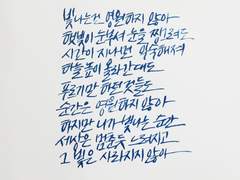 빛나는건 영원하지 않아
햇빛이 눈부셔 눈을 찡그려도
시간이 지나면 익숙해져
하늘 높이 올라간대도
푸르기만 하던 것들도
순간은 영원하지 않아
하지만 니가 빛나는 순간
세상은 멈춘듯 느려지고
그 빛은 사라지지 않아